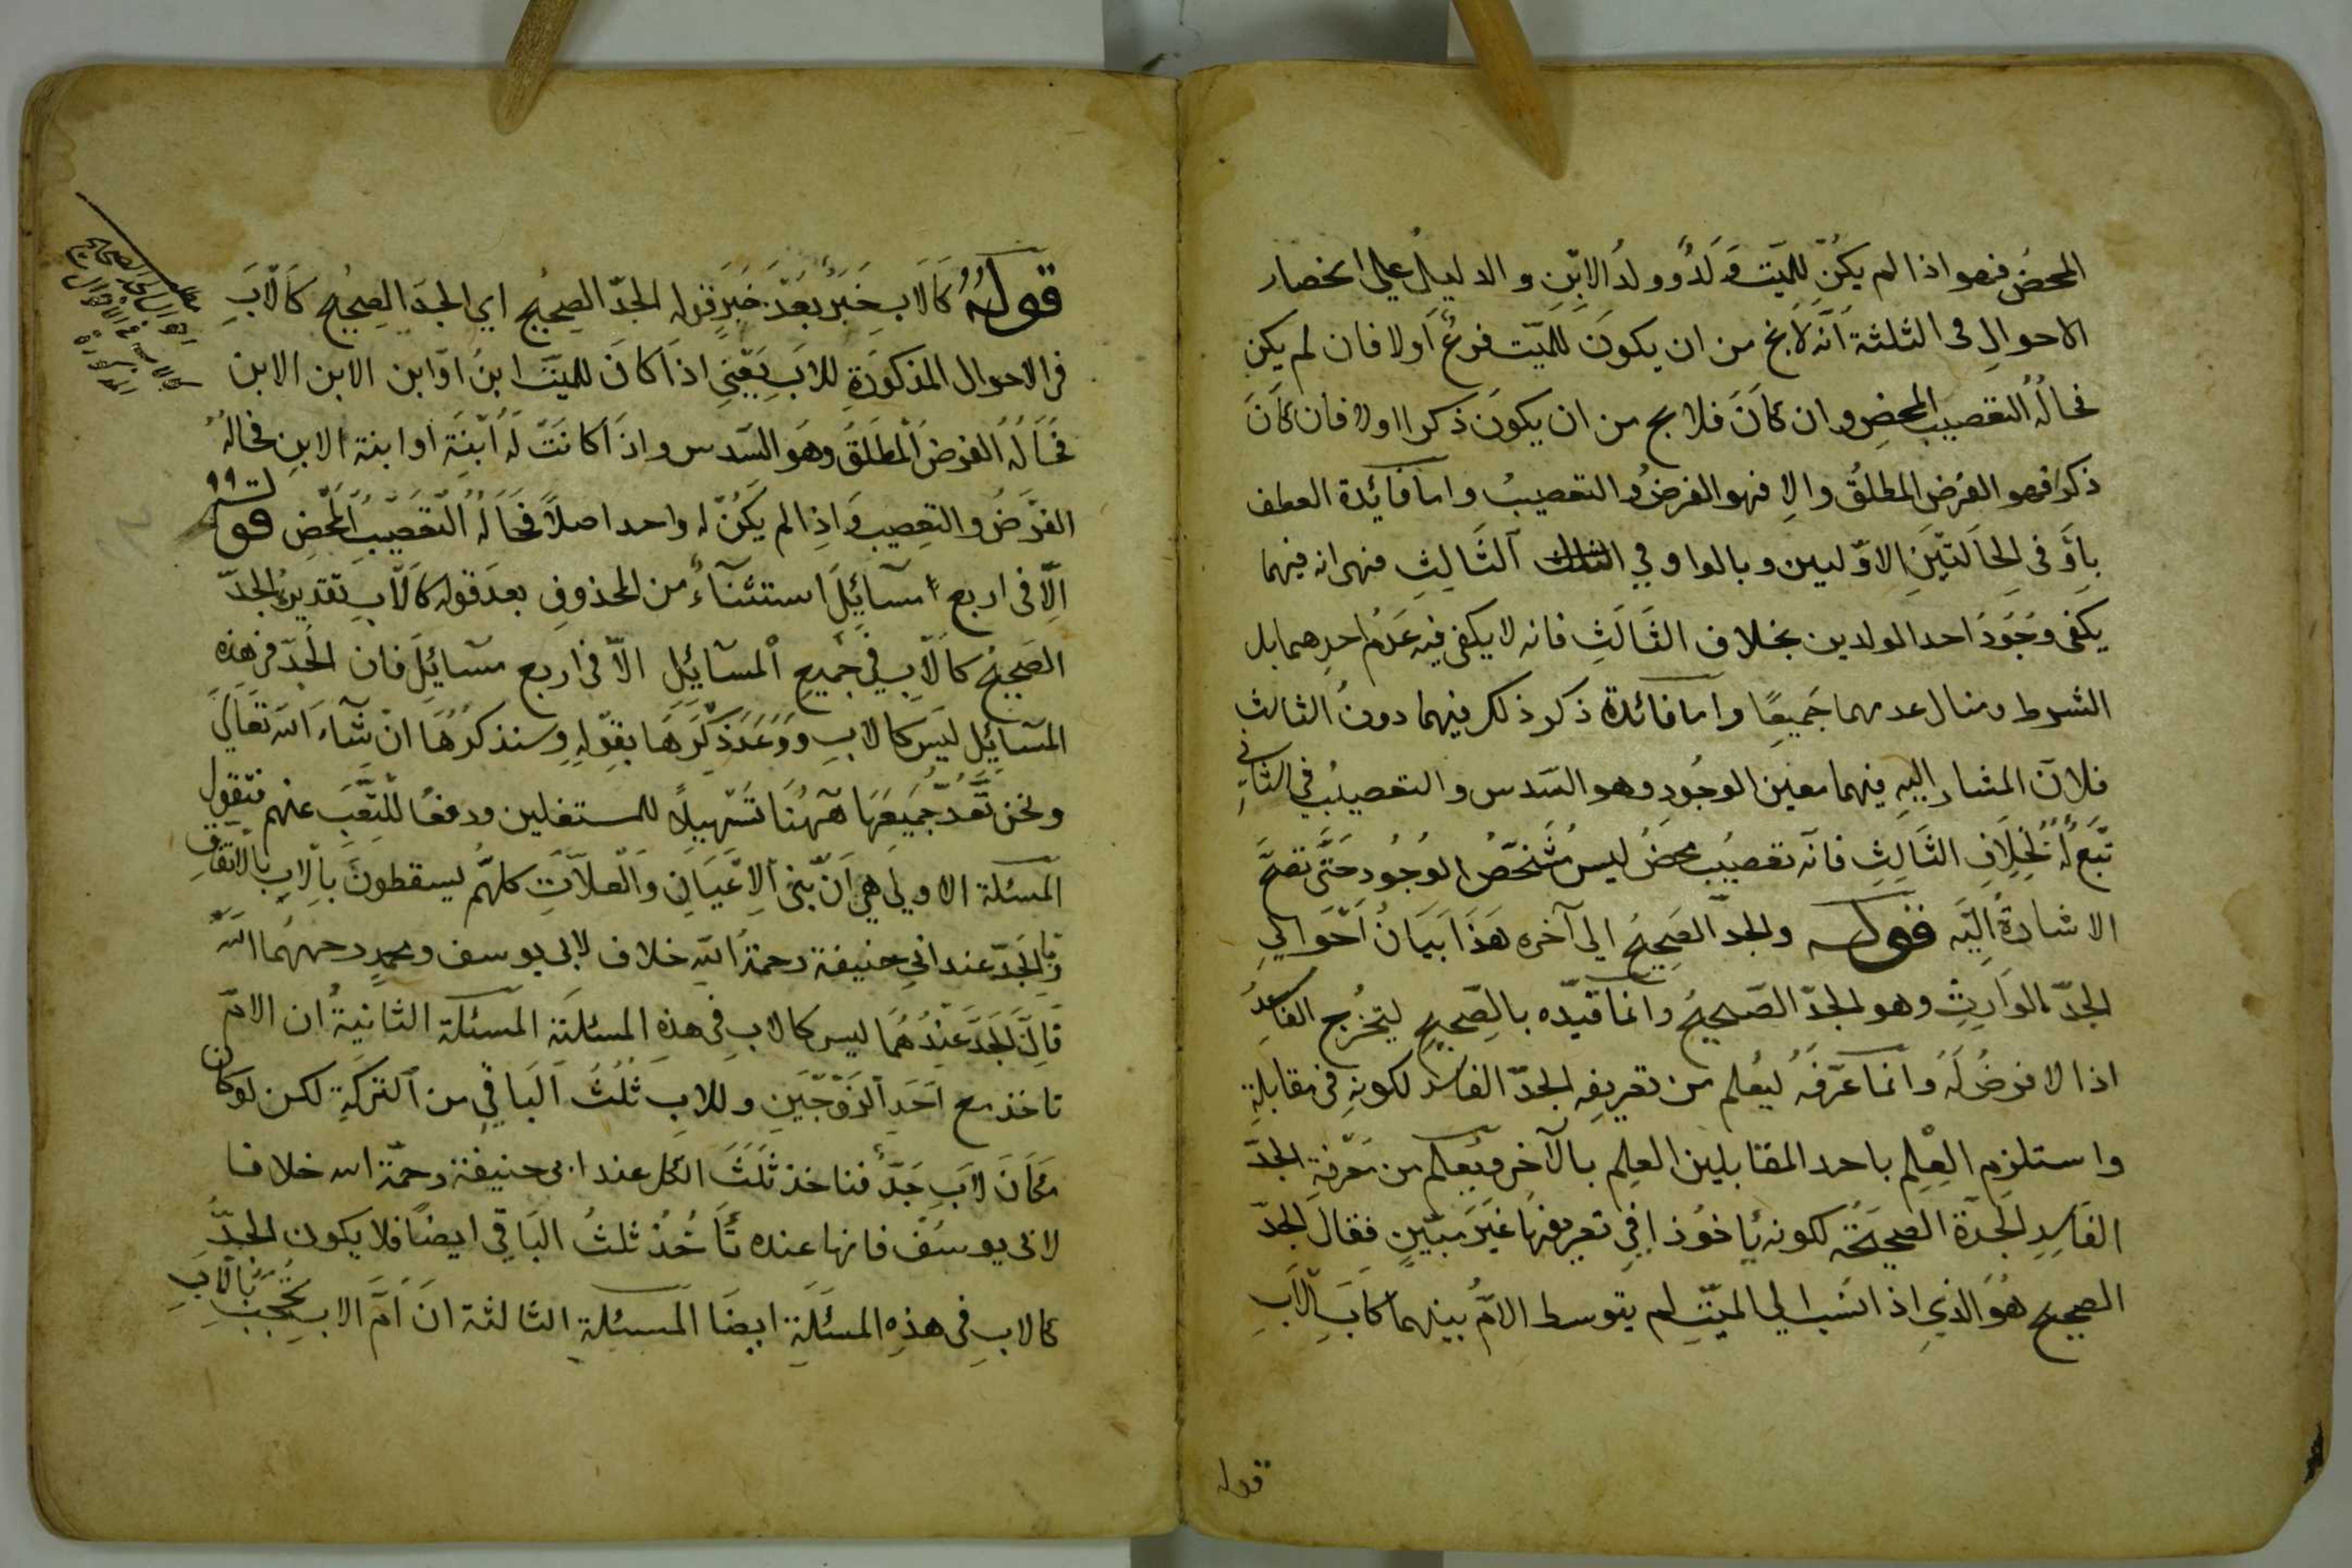 المحض فهو اذا لم يكن للميت ولد وولد الابن والدليل على انحصار
الاحوال فى الثلثة انه لا يخ من ان يكون للميت فرع او لا فان لم يكن
فحاله التعصيب المحض وان كان فلا يخ من ان يكون ذكرا او لا فان كان
ذكرا فهو الفرض المطلق والا فهو الفرض والتعصيب واما فائدة العطف
باو فى الحالتين الاوليين وبالواو في الثالث فهى انه فيهما
يكفى وجود احد الولدين بخلاف الثالث فانه لا يكفى فيه عدم احدهما بل
الشرط عدمهما جميعا واما فائدة ذكر ذلك فيهما دون الثالث
فلان المشار اليه فيهما معين الوجود وهو السدس والتعصيب في الثانى
تبع له بخلاف الثالث فانه تعصيب محض ليس مشخص الوجود حتى تصح
الاشارة اليه قوله والجد الصحيح الى آخره هذا بيان احوال
الجد الوارث وهو الجد الصحيح وانما قيده بالصحيح ليخرج الفاسد
اذا لا فرض له وانما عرفه ليعلم من تعريفه الجد الفاسد لكونه فى مقابلة
واستلزم العلم باحد المقابلين العلم بالآخر ويعلم من معرفة الجد
الفاسد الجدة الصحيحة لكونه ماخوذا في تعريفها غير مبين فقال الجد
الصحيح هو الذي اذا انسب الى الميت لم يتوسط الام بينهما كاب الاب
قوله
قوله كالاب خبر بعد خبر قوله الجد الصحيح اي الجد الصحيح كالاب
فى الاحوال المذكورة للاب يعنى اذا كان للميت ابن او ابن الابن الابن
فحاله الفرض المطلق وهو السدس واذا كانت له ابنة او ابنة الابن فحاله
الفرض والتعصيب واذا لم يكن له واحد اصلا فحاله التعصيب المحض قوله
الا فى اربع مسائل استثناء من المحذوف بعد قوله كالاب تقديره الجد
الصحيح كالاب في جميع المسائل الا فى اربع مسائل فان الجد فى هذه
المسائل ليس كالاب ووعد ذكرها بقوله وسنذكرها ان شاء الله تعالى
ونحن نعد جميعها ههنا تسهيلا للمستغلين ودفعا للتعب عنهم فنقول
المسئلة الاولي هي ان بنى الاعيان والعلات كلهم يسقطون بالاب بالاتفاق
وبالجد عند ابي حنيفة رحمة الله خلاف لابى يوسف ومحمد رحمهما الله
فان الجد عندهما ليس كالاب فى هذه المسئلة المسئلة الثانية ان الام
تاخذ مع احد الزوجين وللاب ثلث الباقي من التركة لكن لو كان
مكان الاب جد فتاخذ ثلث الكل عند ابى حنيفة رحمة الله خلافا
لابى يوسف فانها عنده تأخذ ثلث الباقي ايضا فلا يكون الجد
كالاب فى هذه المسئلة ايضا المسئلة الثالثة ان ام الاب تحجب بالاب